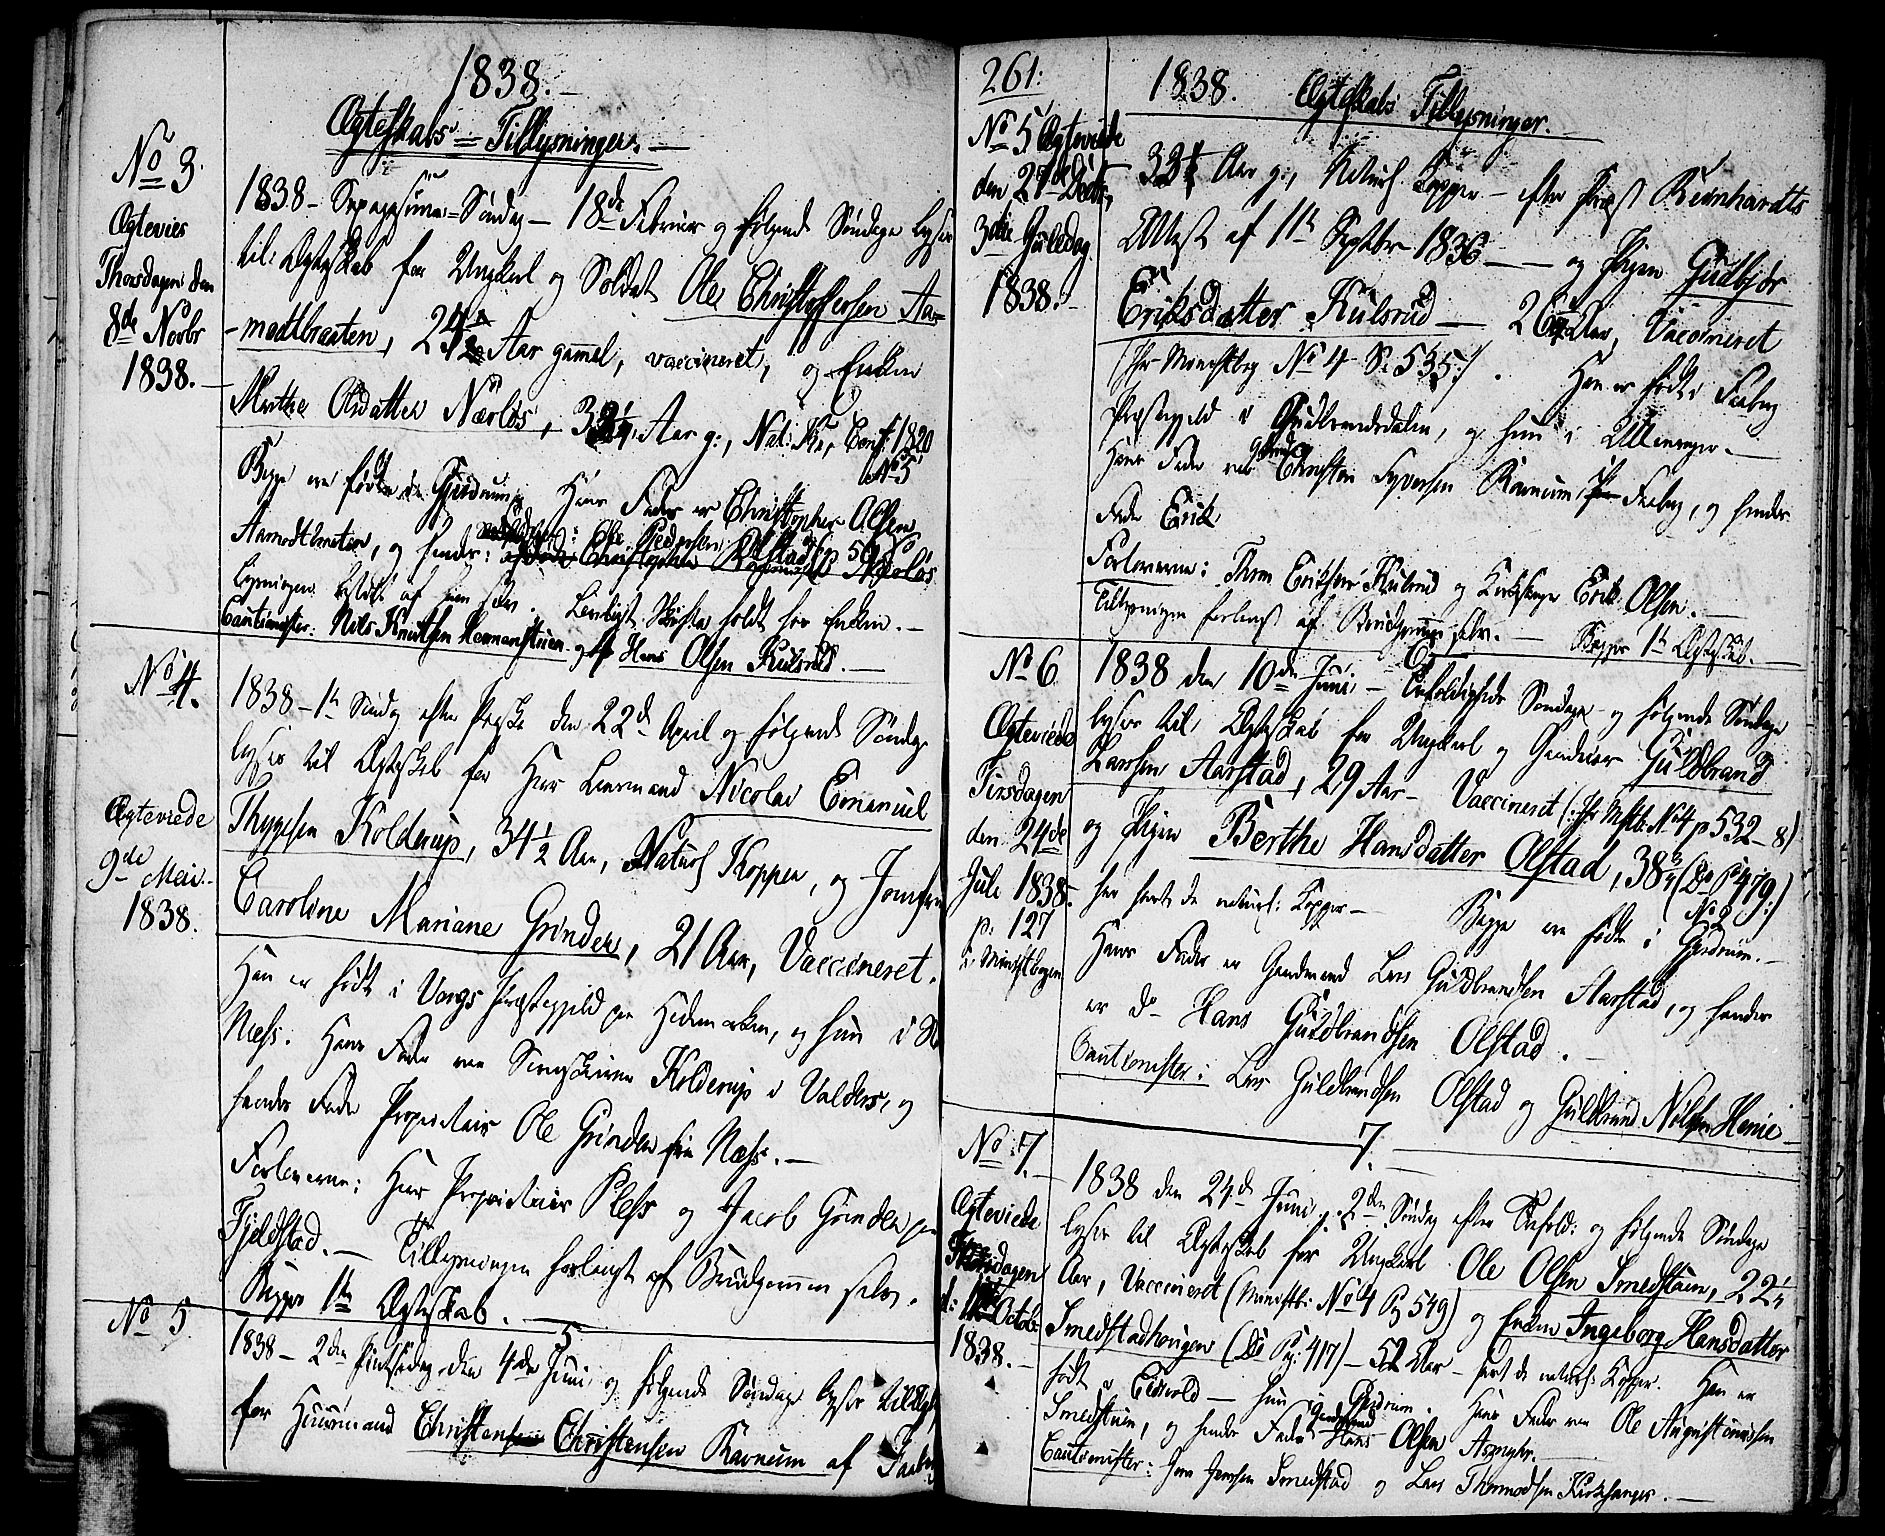 1838.
Ægteskabs=Tillysninger.
No 3.
Ægtevies
Thorsdagen den
8de Novbr
1838.
1838 - Søndag - 18de Februar og følgende Søndage lyses
til Ægteskab for Ungkarl og Soldat Ole Christophersen Aa-
-modtbraaten, 24 Aar gammel, vaccineret, og Enken
Marthe Olsdatter Nærløs, Aar g:, Nat: K:, Conf: 1820
No 5
Begge ere fødte i Gjerdrum. Hans Fader er Christopher Olsen
Aamodtbraaten, og hendes: Ole Pedersen
Olstad
Lysningen bestilt af ham selv. Skifte holdt for Enken.
Cautionister: Nils Knudsen Hermanstuen og Hans Olsen Kulsrud.
No 4.
Ægteviede
9de Mai
1838.
1838 - 1ste Søndag efter Paaske den 22de April og følgende Søndage
lyses til Ægteskab for Herr Nicolai Emanuel
Thygesen Kolderup, 34 1/2 Aar, Naturl Kopper, og Jomfru
Caroline Mariane Grinder, 21 Aar, Vaccineret.
Han er født i Vangs Præstegjeld paa Hedemarken, og hun i
Næss. Hans Fader var Kolderup i Valders, og
hendes Fader Proprietair Ole Grinder fra Næss.
Forloverne: Herr Proprietair Pless og Jacob Grinder paa
Fjeldstad. Tillysningen forlangt af Brudgommen selv.
Begges 1ste Ægteskab.
No 5
5
1838 - 2den Pintsedag den 4de Juni og følgende Søndage lyses til
for Huusmand Christen Christensen Ravnum af
261:
1838. Ægteskabs Tillysninger.
No 5 Ægteviede
den 27de Decbr,
3die Juledag
1838.
Aar g:, Naturl Kopper - efter Præst Reinhardts
Attest af 11te Septbr 1836 - og Pigen Gudbjør
Eriksdatter Kulsrud - Aar, Vaccineret
No 4 S: 535:/. Han er født i Faaberg
Præstegjeld i Gudbrandsdalen, og hun i Ullensager.
Hans Fader var Christen Syversen Ravnum i Faaberg, og hendes
Fader Erik
Forloverne: Thron Eriksen Kulsrud og Erik Olsen.
Tillysningen forlangt af Brudgommen selv. - Begges 1ste Ægteskab.
No 6
Ægteviede
Tirsdagen
den 24de
Juli 1838.
p: 127
i Ministbogen
6
1838 den 10de Juni - Trefoldigheds Søndag - og følgende Søndage
lyses til Ægteskab for Ungkarl og Gaardeier Guldbrand
Larsen Aarstad, 29 Aar - Vaccineret (: No 4 p 532 - 8)
og Pigen Berthe Hansdatter Olstad, 38 (Do P 479:)
No 2
har havt de naturl: Kopper - Begge ere fødte i Gjerdrum.
Hans Fader er Gaardmand Lars Guldbrandsen Aarstad, og hendes
er do Hans Guldbrandsen Olstad.
Cautionister: Lars Guldbrandsen Olstad og Guldbrand Nilsen Henie
No 7.
Ægteviede
Octob:
1838.
7.
1838 den 24de Juni, 2den Søndag efter Trefold: og følgende Søndage
lyses til Ægteskab for Ungkarl Ole Olsen Smedstuen, 22
Aar, Vaccineret (Ministb: No 4 Pg 549) og Enken Ingeborg Hansdatter
Smedstadhougen (Do Pg: 417) - 52 Aar - havt de naturl: Kopper. Han er
født i Eidsvold - hun i Gjerdrum. Hans Fader var Ole Augustinusen
Smedstuen, og hendes Fader Gaardmand Hans Olsen Asmyhr.
Cautionister: Jens Jensen Smedstad og Lars Thormodsen Kirkehanger.